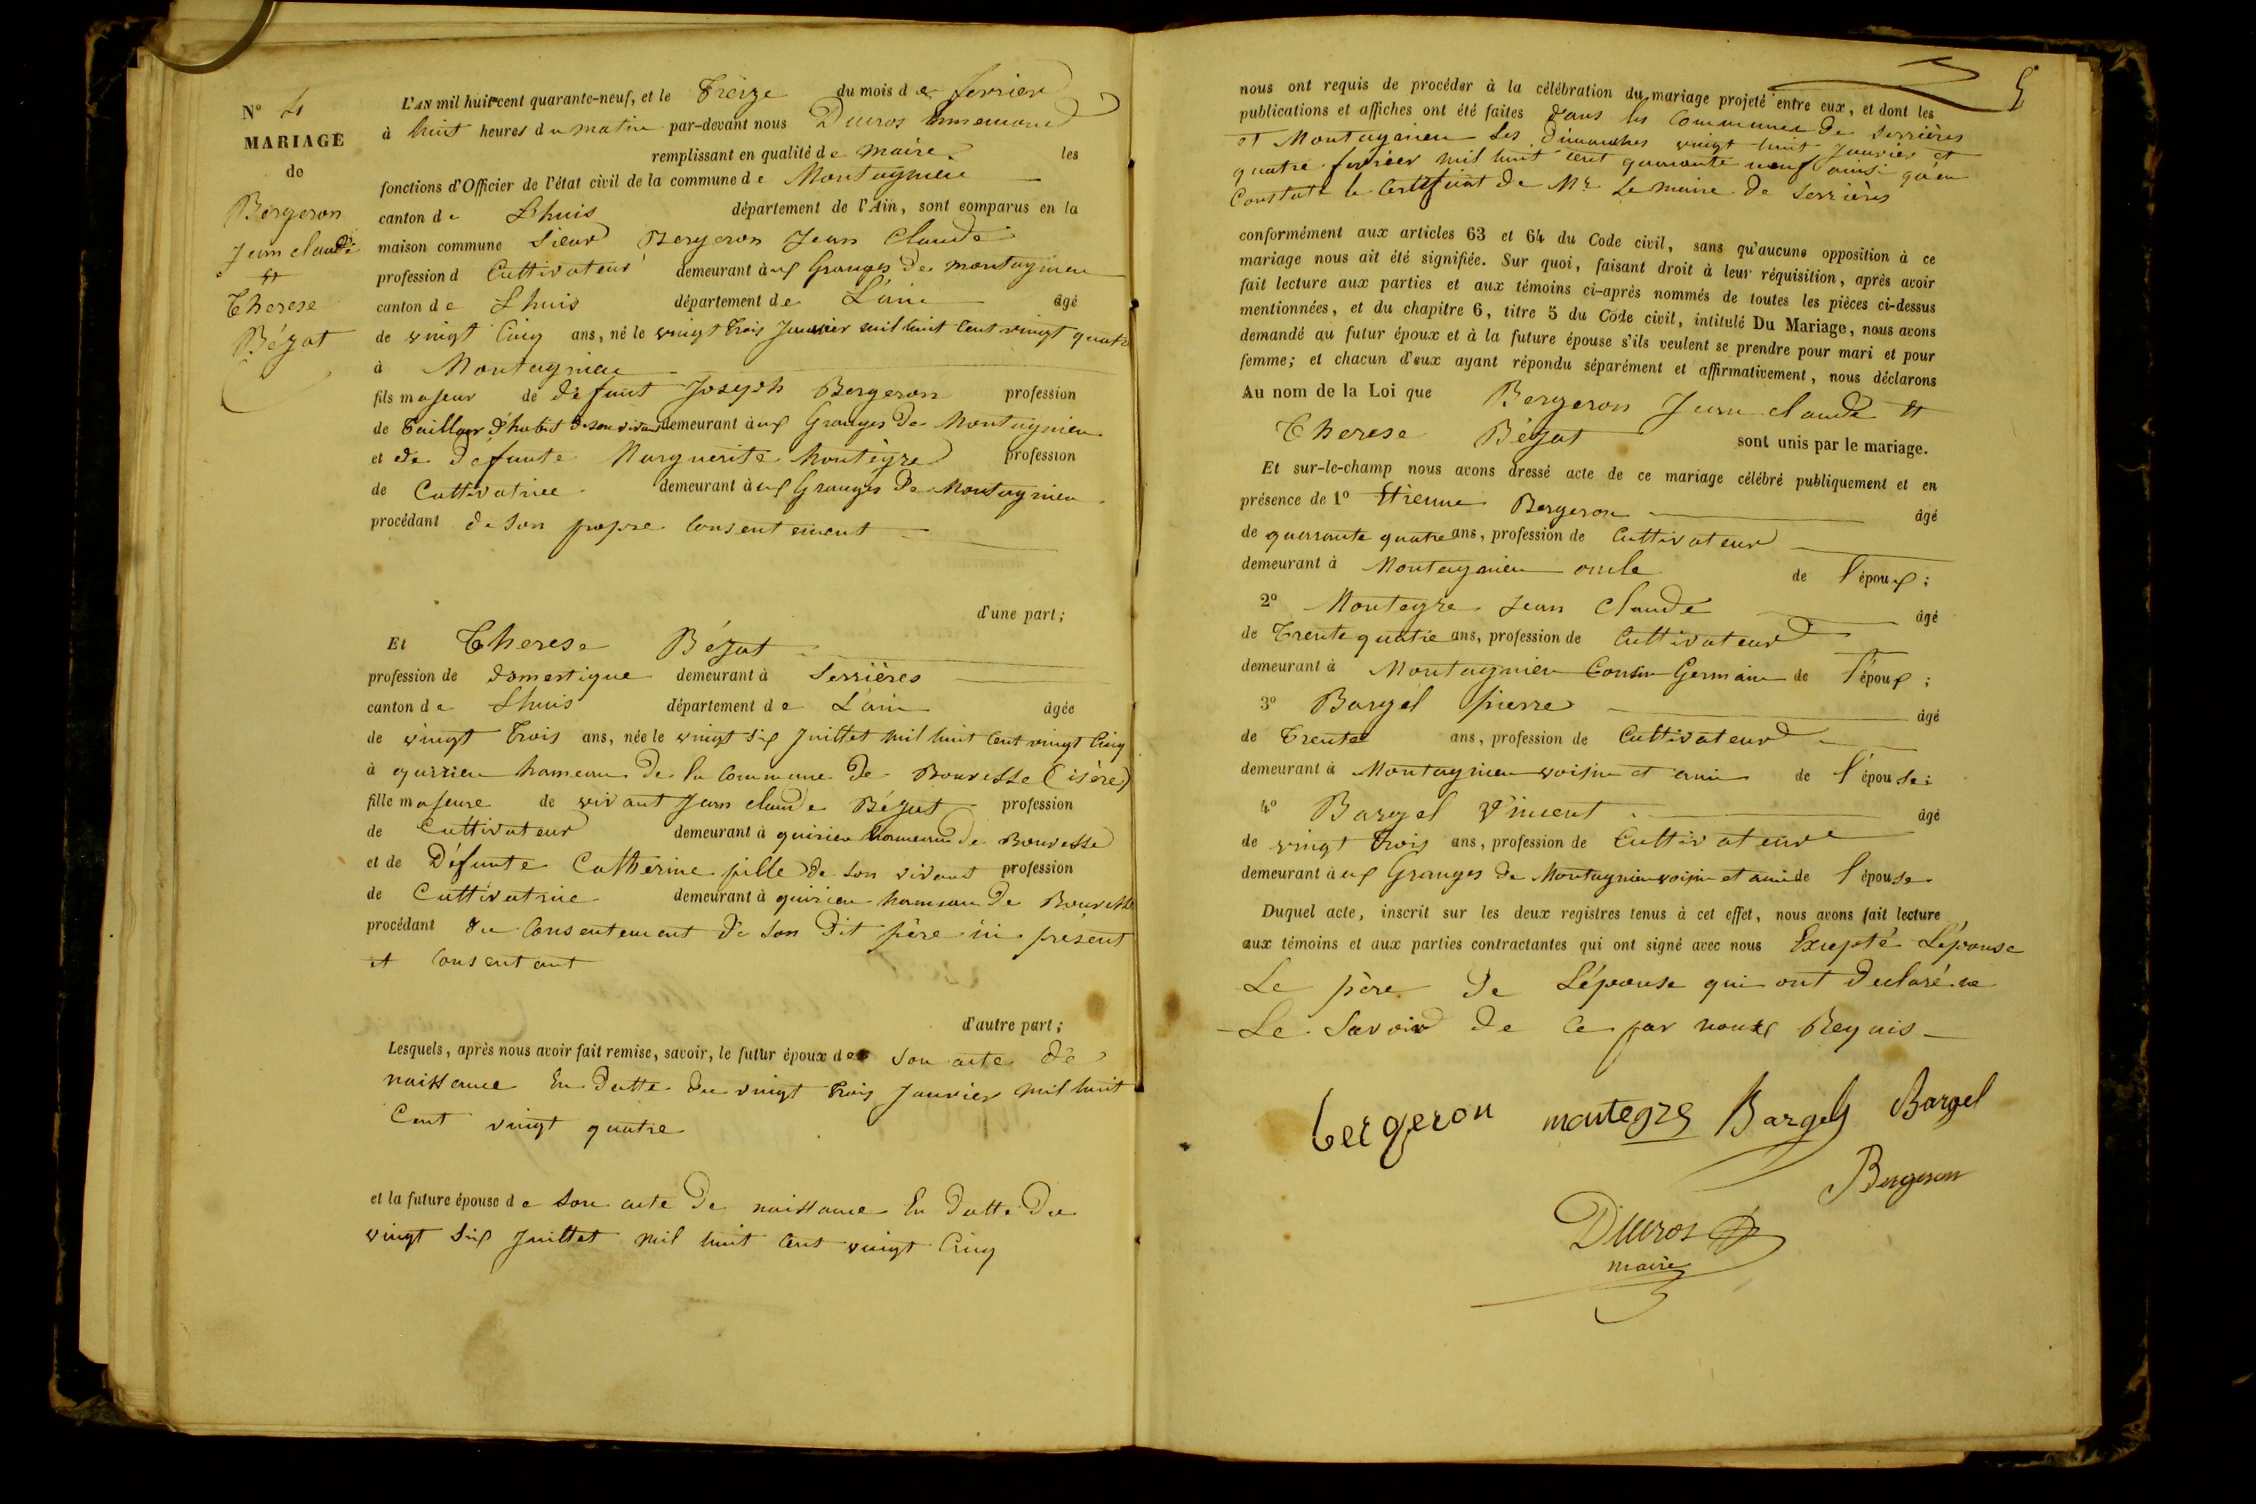 N° 4
MARIAGE
de
Bergeron
Jean claude
et
Therese
Béjat
L'AN mil huit cent quarante-neuf, et le Treize du mois de fevrier
à huit heures du matin par-devant nous Ducros
remplissant en qualité de maire les
fonctions d'Officier de l'état civil de la commune de Montagnieu
canton de Lhuis département de l'Ain, sont comparus en la
maison commune Sieur Bergeron Jean Claude
profession d Cultivateur demeurant aux Granges de montagnieu
canton de Lhuis département de L'ain âgé
de vingt Cinq ans, né le vingt trois Janvier mil huit Cent vingt quatre
à Montagnieu
fils majeur de défunt Joseph Bergeron profession
de Tailleur d'habit de son vivant demeurant aux Granges de Montagnieu
et de defunte Marguerite Montegre profession
de Cultivatrice demeurant aux Granges de Montagnieu
procédant de Son propre Consentement
d'une part;
Et Therese Béjat
profession de domestique demeurant à Serrières
canton de Lhuis département de L'ain âgée
de vingt trois ans, née le vingt Six Juillet mil huit Cent vingt Cinq
à quirieu hameau de la Commune de Bouvesse (isère)
fille majeure de vivant Jean claude Béjat profession
de Cultivateur demeurant à quirieu hameau de Bouvesse
et de Défunte Catherine pille de Son vivant profession
de Cultivatrice demeurant à quirieu hameau de Bouvesse
procédant du Consentement de Son Dit père ici présent
et Consentant
d'autre part;
Lesquels, après nous avoir fait remise, savoir, le futur époux de Son acte de
naissance En datte du vingt trois Janvier mil huit
Cent vingt quatre
et la future épouse de Son acte de naissance En datte du
vingt Six Juillet mil huit Cent vingt Cinq
5
nous ont requis de procéder à la célébration du mariage projeté entre eux, et dont les
publications et affiches ont été faites dans les Communes de Serrières
et Montagnieu les dimanches vingt huit Janvier et
quatre fevrier mil huit Cent quarante neuf ainsi qu'en
Constate le Certificat de Mr Le maire de Serrières
conformément aux articles 63 et 64 du Code civil, sans qu'aucune opposition à ce
mariage nous ait été signifiée. Sur quoi, faisant droit à leur réquisition, après avoir
fait lecture aux parties et aux témoins ci-après nommés de toutes les pièces ci-dessus
mentionnées, et du chapitre 6, titre 5 du Code civil, intitulé Du Mariage, nous avons
demandé au futur époux et à la future épouse s'ils veulent se prendre pour mari et pour
femme; et chacun d'eux ayant répondu séparément et affirmativement, nous déclarons
Au nom de la Loi que Bergeron Jean claude et
Therese Béjat sont unis par le mariage.
Et sur-le-champ nous avons dressé acte de ce mariage célébré publiquement et en
présence de 1° Etienne Bergeron âgé
de quarante quatre ans, profession de Cultivateur
demeurant à Montagnieu oncle de l'époux;
2° Montegre Jean Claude âgé
de Trente quatre ans, profession de Cultivateur
demeurant à Montagnieu Cousin Germain de l'époux;
3° Bargel pierre âgé
de Trente ans, profession de Cultivateur
demeurant à Montagnieu voisin et ami de l'épouse;
4° Bargel Vincent âgé
de vingt trois ans, profession de Cultivateur
demeurant aux Granges de Montagnieu voisin et ami de l'épouse
Duquel acte, inscrit sur les deux registres tenus à cet effet, nous avons fait lecture
aux témoins et aux parties contractantes qui ont signé avec nous Excepté L'épouse
Le père de L'épouse qui ont déclaré ne
Le Savoir de Ce par nous Requis
bergeron montegre Bargel Bargel
Bergeron
Ducros
maire